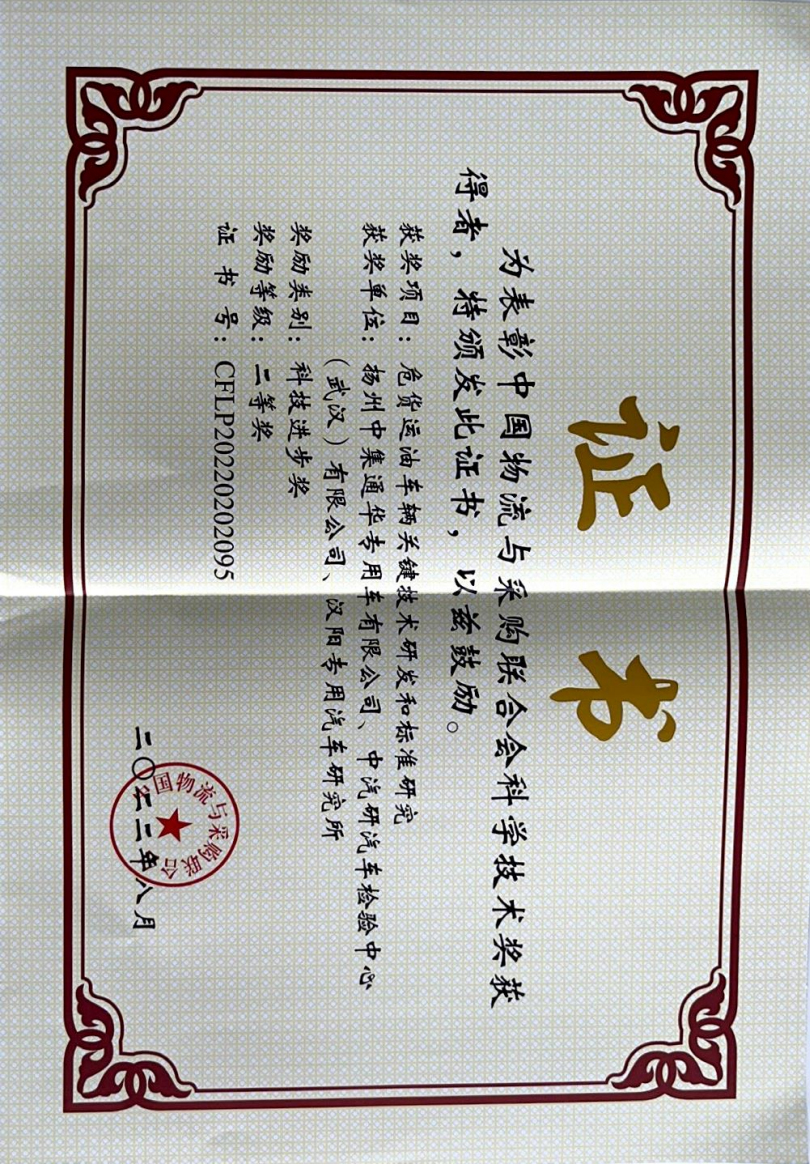 证书
为表彰中国物流与采购联合会科学技术奖获
得者，特颁发此证书，以兹鼓励。
获奖项目：危货运油车辆关键技术研发和标准研究
获奖单位：扬州中集通华专用车有限公司、中汽研汽车检验中心
（武汉）有限公司、汉阳专用汽车研究所
奖励类别：科技进步奖
奖励等级：二等奖
证书号：CFLP20220202095
二〇二二年八月
国物流与采购联合